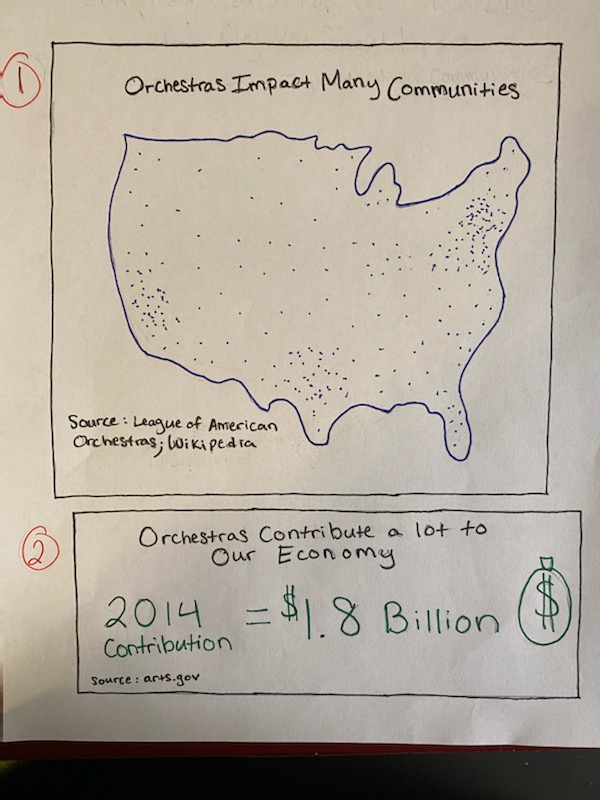 1
Orchestras Impact Many Communities
Source: League of American
Orchestras; Wikipedia
2
Orchestras Contribute a lot to
Our Economy
2014 = $1.8 Billion $
Contribution
source: arts.gov